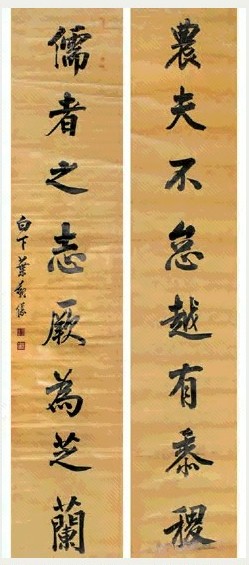 農夫不怠越有黍稷
儒者之志厥為芝蘭
白下葉